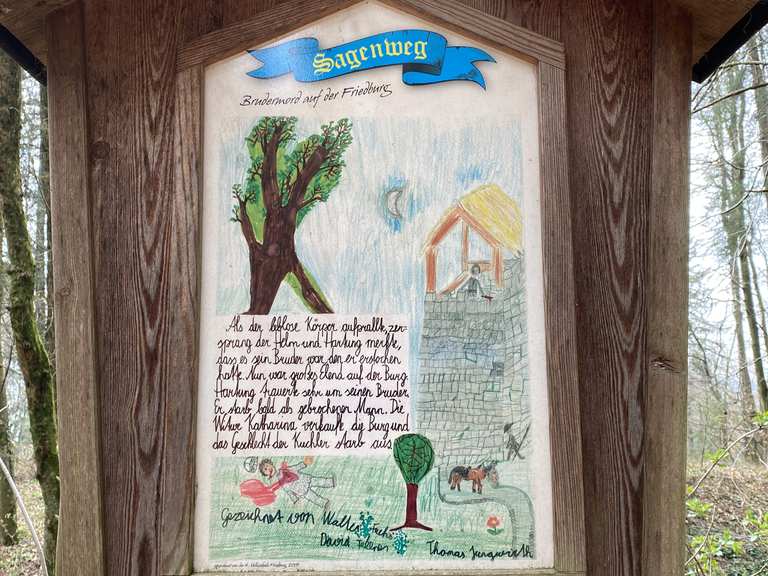 Sagenweg
Brudermord auf der Friedburg
Als der leblose Körper aufprallte, zer-
sprang der Helm und Hartung merkte,
dass es sein Bruder war den er erstochen
hatte. Nun war großes Elend auf der Burg
Hartung trauerte sehr um seinen Bruder.
Er starb bald als gebrochenen Mann. Die
Witwe Katharina verkaufte die Burg und
das Geschlecht der Kuchler starb aus
Gezeichnet von Walter
David
Thomas Jungwirth